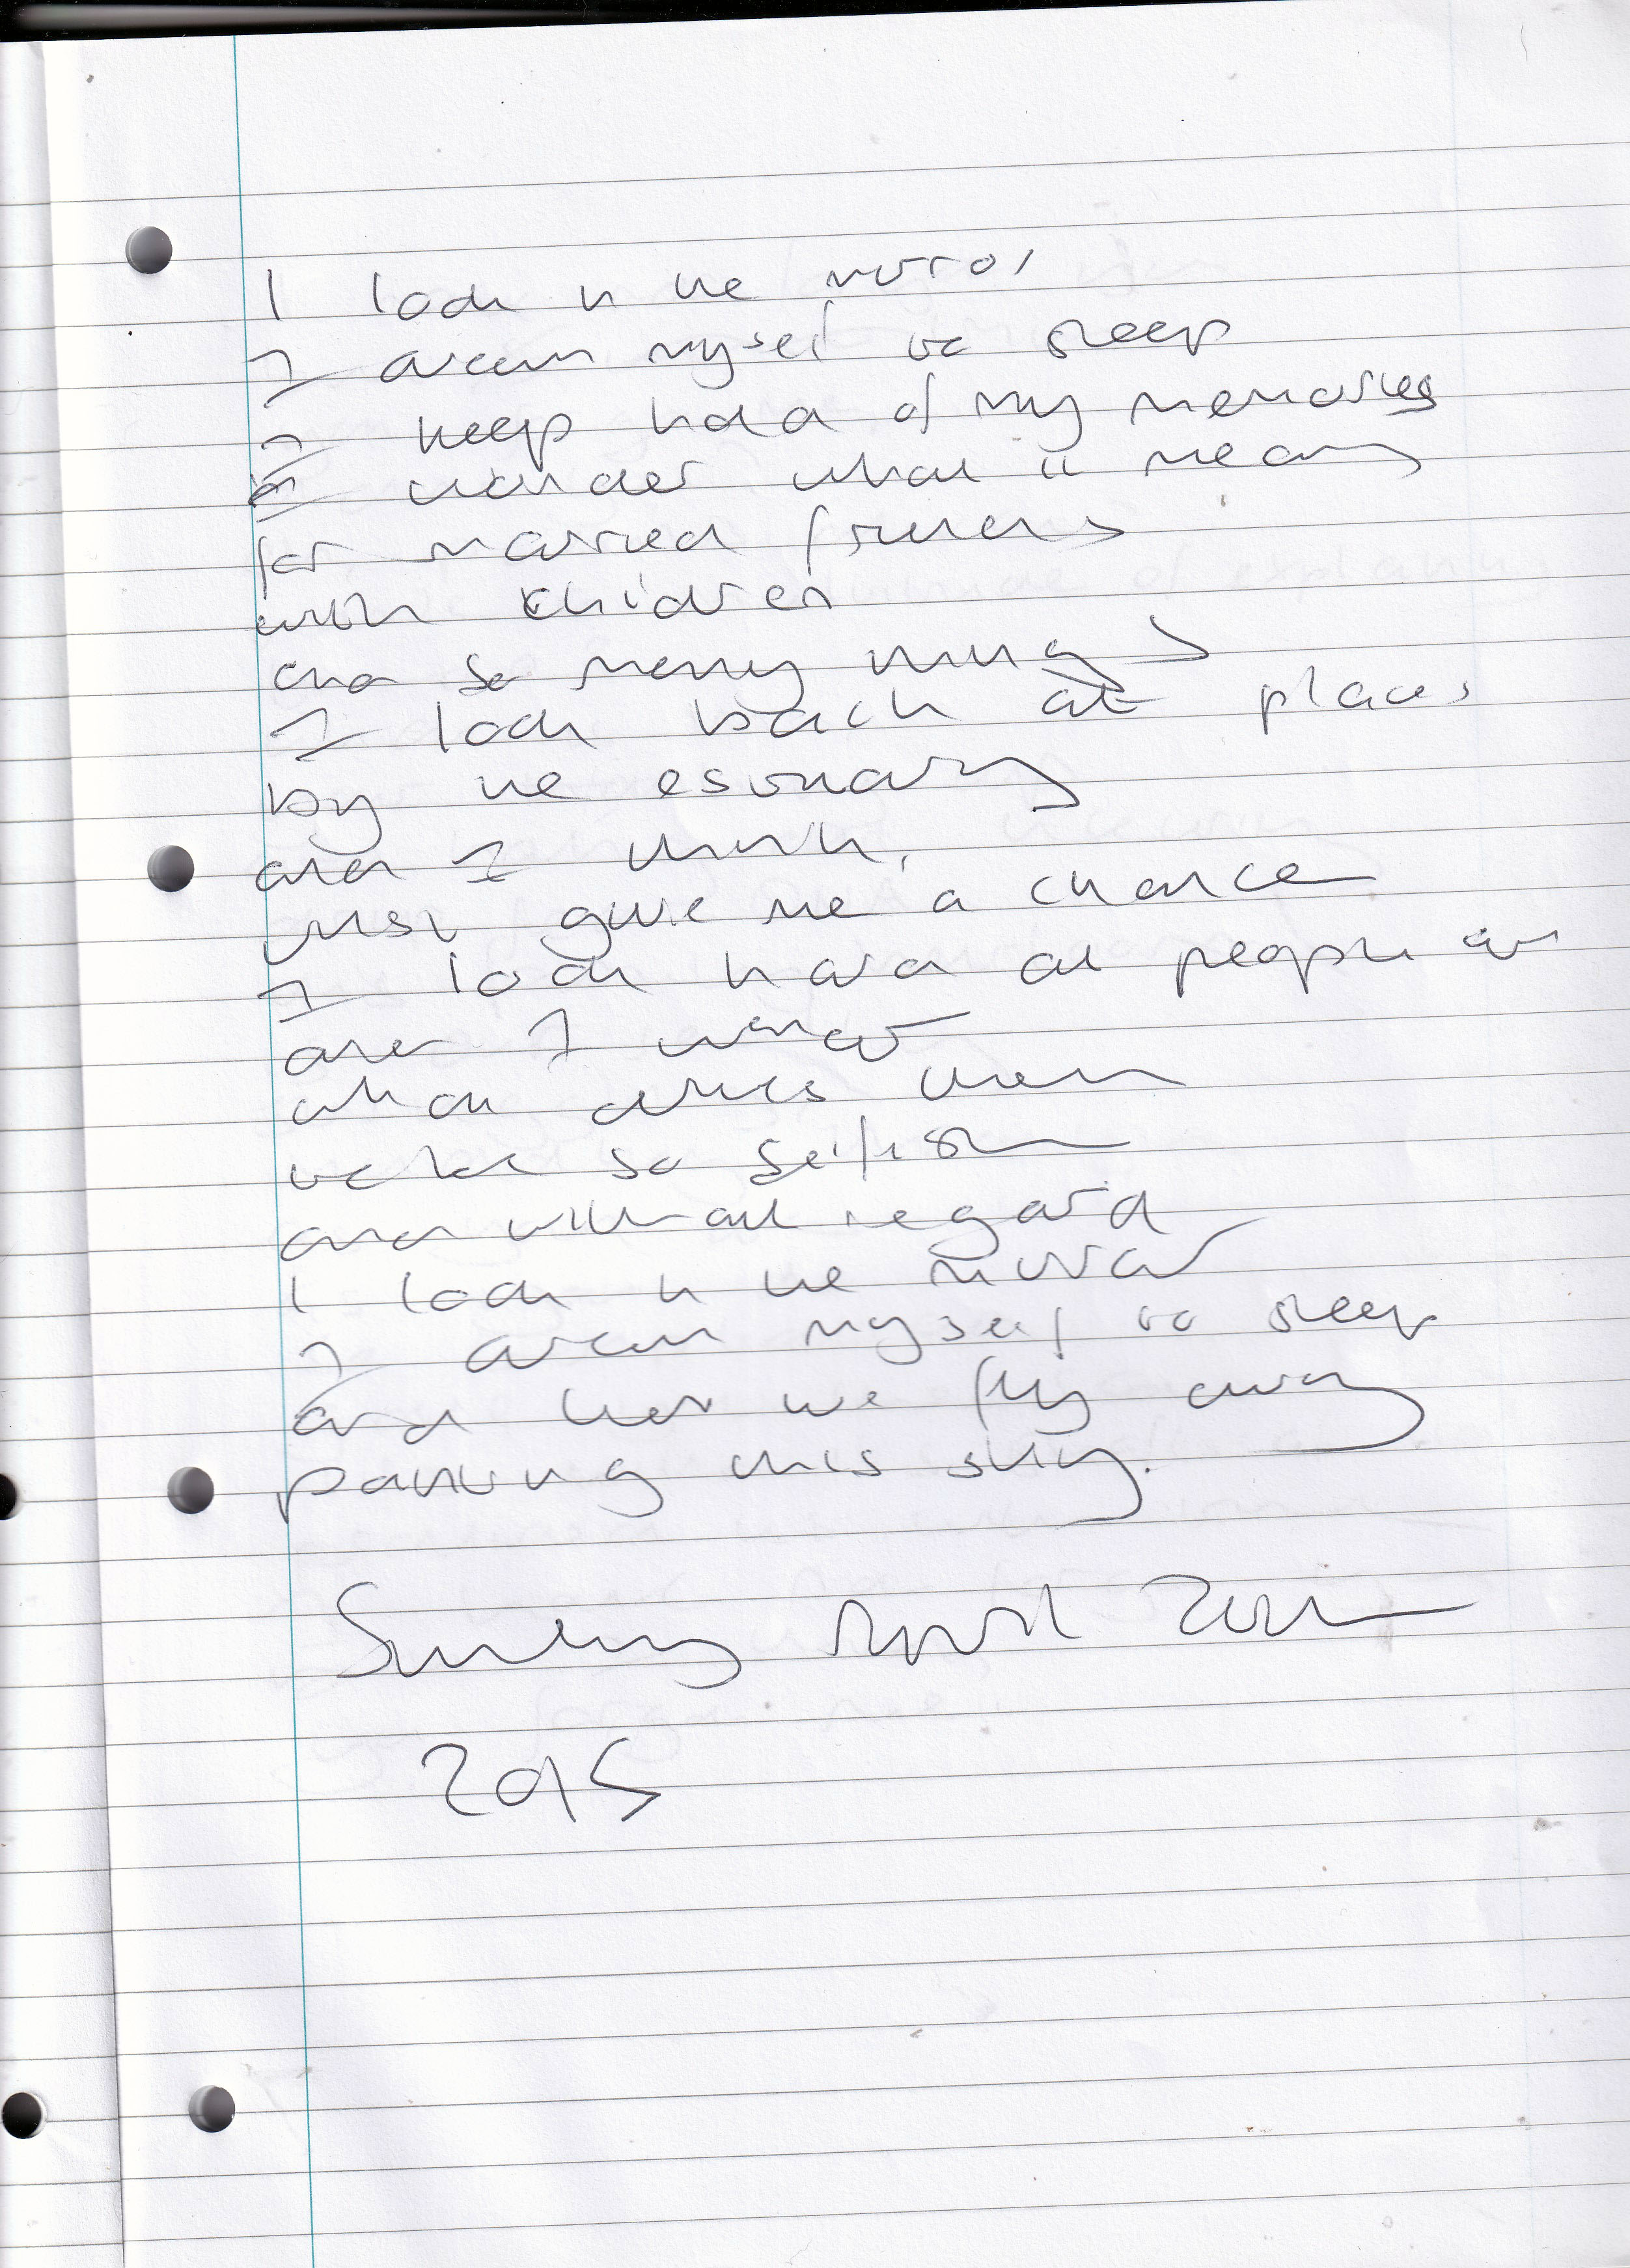 I look in the mirror
I dream myself to sleep
I keep hold of my memories
I wonder what it means
for married friends
with children
and so many things
I look back at places
by the estuary
and I think,
just give me a chance
I look hard at people
and I wonder
what drives them
to be so selfish
and without regard
I look in the mirror
I dream myself to sleep
and then we fly away
painting this sky.
Sunday April
2015